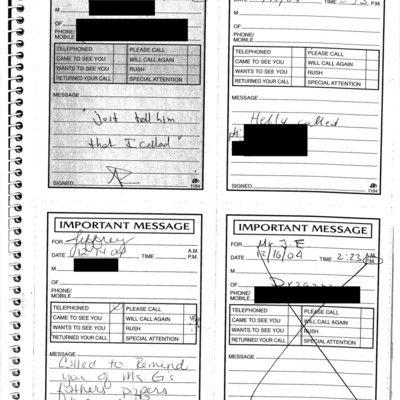 M
OF
PHONE/
MOBILE
TELEPHONED PLEASE CALL
CAME TO SEE YOU WILL CALL AGAIN
WANTS TO SEE YOU RUSH
RETURNED YOUR CALL SPECIAL ATTENTION
MESSAGE
"Just told him
that I called"
SIGNED 1184
DATE TIME P.M.
M
OF
PHONE/
MOBILE
TELEPHONED PLEASE CALL
CAME TO SEE YOU WILL CALL AGAIN
WANTS TO SEE YOU RUSH
RETURNED YOUR CALL SPECIAL ATTENTION
MESSAGE
called
SIGNED 1184
IMPORTANT MESSAGE
FOR Jeffrey
DATE 12/14/04 TIME A.M.
P.M.
M
OF
PHONE/
MOBILE
TELEPHONED PLEASE CALL
CAME TO SEE YOU WILL CALL AGAIN
WANTS TO SEE YOU RUSH
RETURNED YOUR CALL SPECIAL ATTENTION
MESSAGE
Called to Remind
you of Ms G's
fathers papers
IMPORTANT MESSAGE
FOR Mr. J.E
DATE 12/16/04 TIME 2:23 A.M.
P.M.
M
OF
PHONE/
MOBILE
TELEPHONED PLEASE CALL
CAME TO SEE YOU WILL CALL AGAIN
WANTS TO SEE YOU RUSH
RETURNED YOUR CALL SPECIAL ATTENTION
MESSAGE